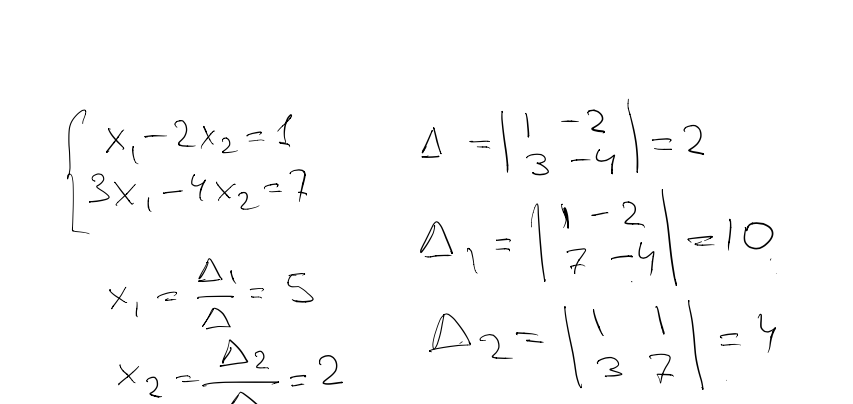 { x₁ - 2x₂ = 1
3x₁ - 4x₂ = 7
x₁ = Δ₁/Δ = 5
x₂ = Δ₂/Δ = 2
Δ = |1 -2; 3 -4| = 2
Δ₁ = |1 -2; 7 -4| = 10
Δ₂ = |1 1; 3 7| = 4